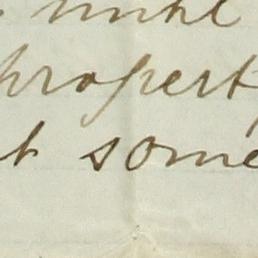 until
propert
t some